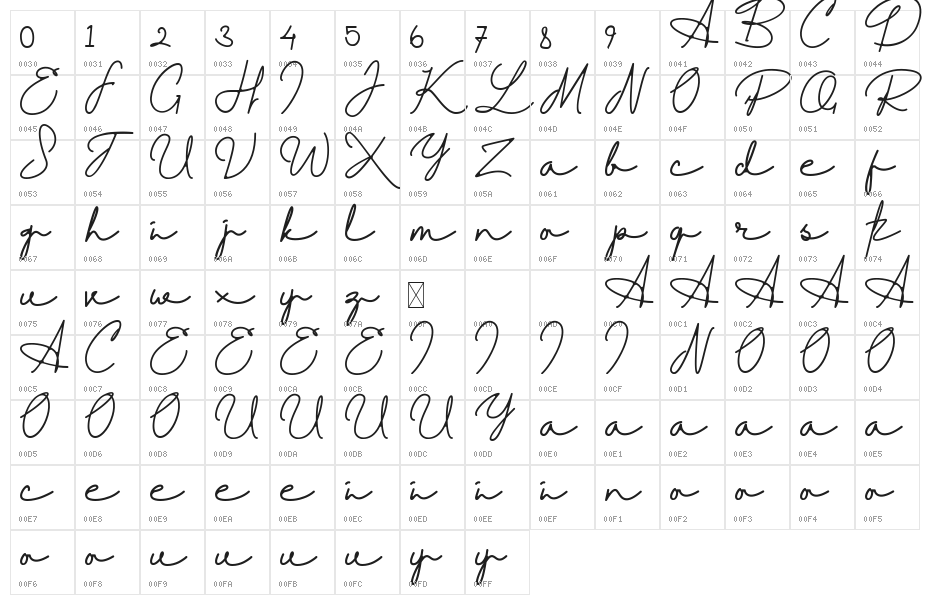 0 1 2 3 4 5 6 7 8 9 A B C D
0030 0031 0032 0033 0034 0035 0036 0037 0038 0039 0041 0042 0043 0044
E F G H I J K L M N O P Q R
0045 0046 0047 0048 0049 004A 004B 004C 004D 004E 004F 0050 0051 0052
S T U V W X Y Z a b c d e f
0053 0054 0055 0056 0057 0058 0059 005A 0061 0062 0063 0064 0065 0066
g h i j k l m n o p q r s t
0067 0068 0069 006A 006B 006C 006D 006E 006F 0070 0071 0072 0073 0074
u v w x y z A A A A A
0075 0076 0077 0078 0079 007A 00A0 00AD 00C0 00C1 00C2 00C3 00C4
A C E E E E I I I I N O O O
00C5 00C7 00C8 00C9 00CA 00CB 00CC 00CD 00CE 00CF 00D1 00D2 00D3 00D4
O O O U U U U Y a a a a a a
00D5 00D6 00D8 00D9 00DA 00DB 00DC 00DD 00E0 00E1 00E2 00E3 00E4 00E5
c e e e e i i i i n o o o o
00E7 00E8 00E9 00EA 00EB 00EC 00ED 00EE 00EF 00F1 00F2 00F3 00F4 00F5
o o u u u u y y
00F6 00F8 00F9 00FA 00FB 00FC 00FD 00FF